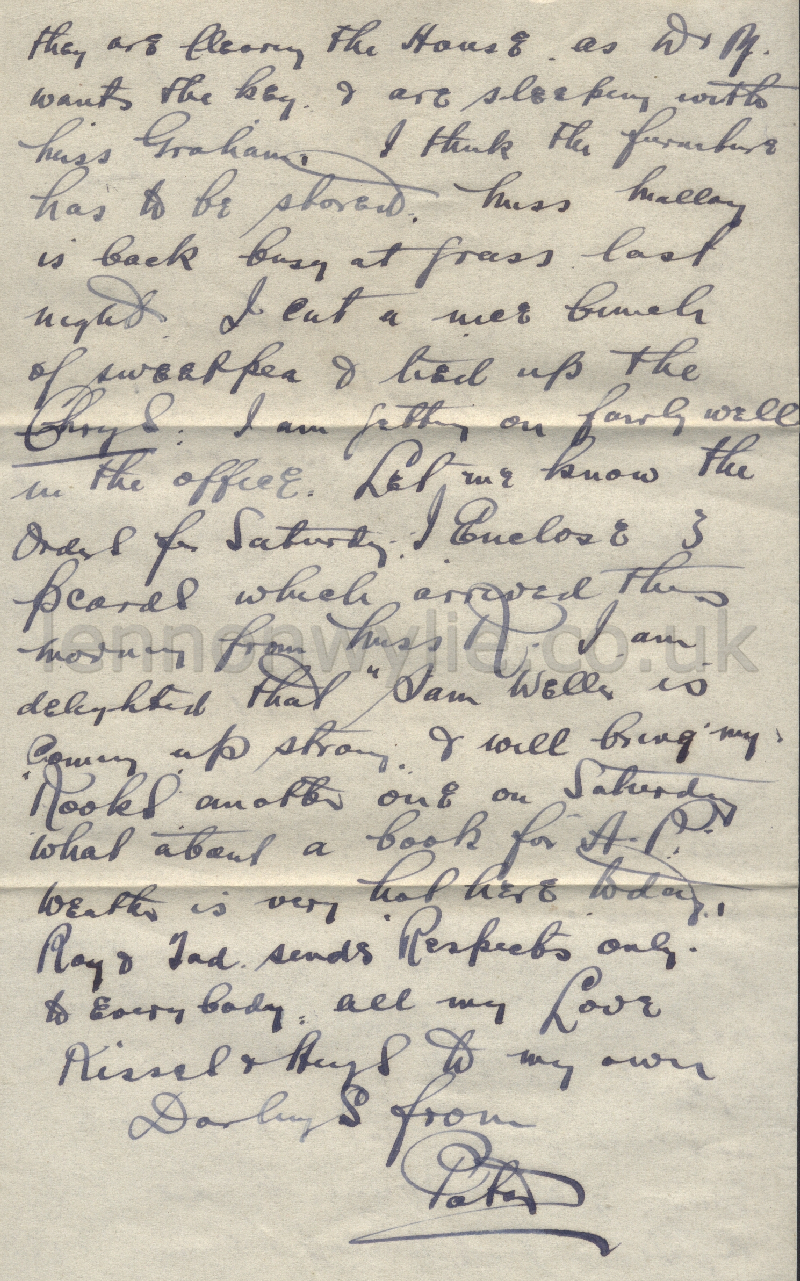 they are clearing the House as Dr M.
wants the key & are sleeping with
Miss Graham. I think the furniture
has to be stored. Miss Mallay
is back busy at grass last
night. I cut a nice bunch
of sweetpea & tied up the
Chrys. I am getting on fairly well
in the office. Let me know the
Orders for Saturday. I Enclose 3
pcards which arrived this
morning from Miss R. I am
delighted that "Sam Weller is
Coming up strong. & will bring my
Rooks another one on Saturday
What about a book for A.P."
Weather is very hot here today,
Ray & Tad sends Respects only.
to Everybody. all my Love
Kisses & Hugs to my own
Darlings from
Pater
lennonwylie.co.uk